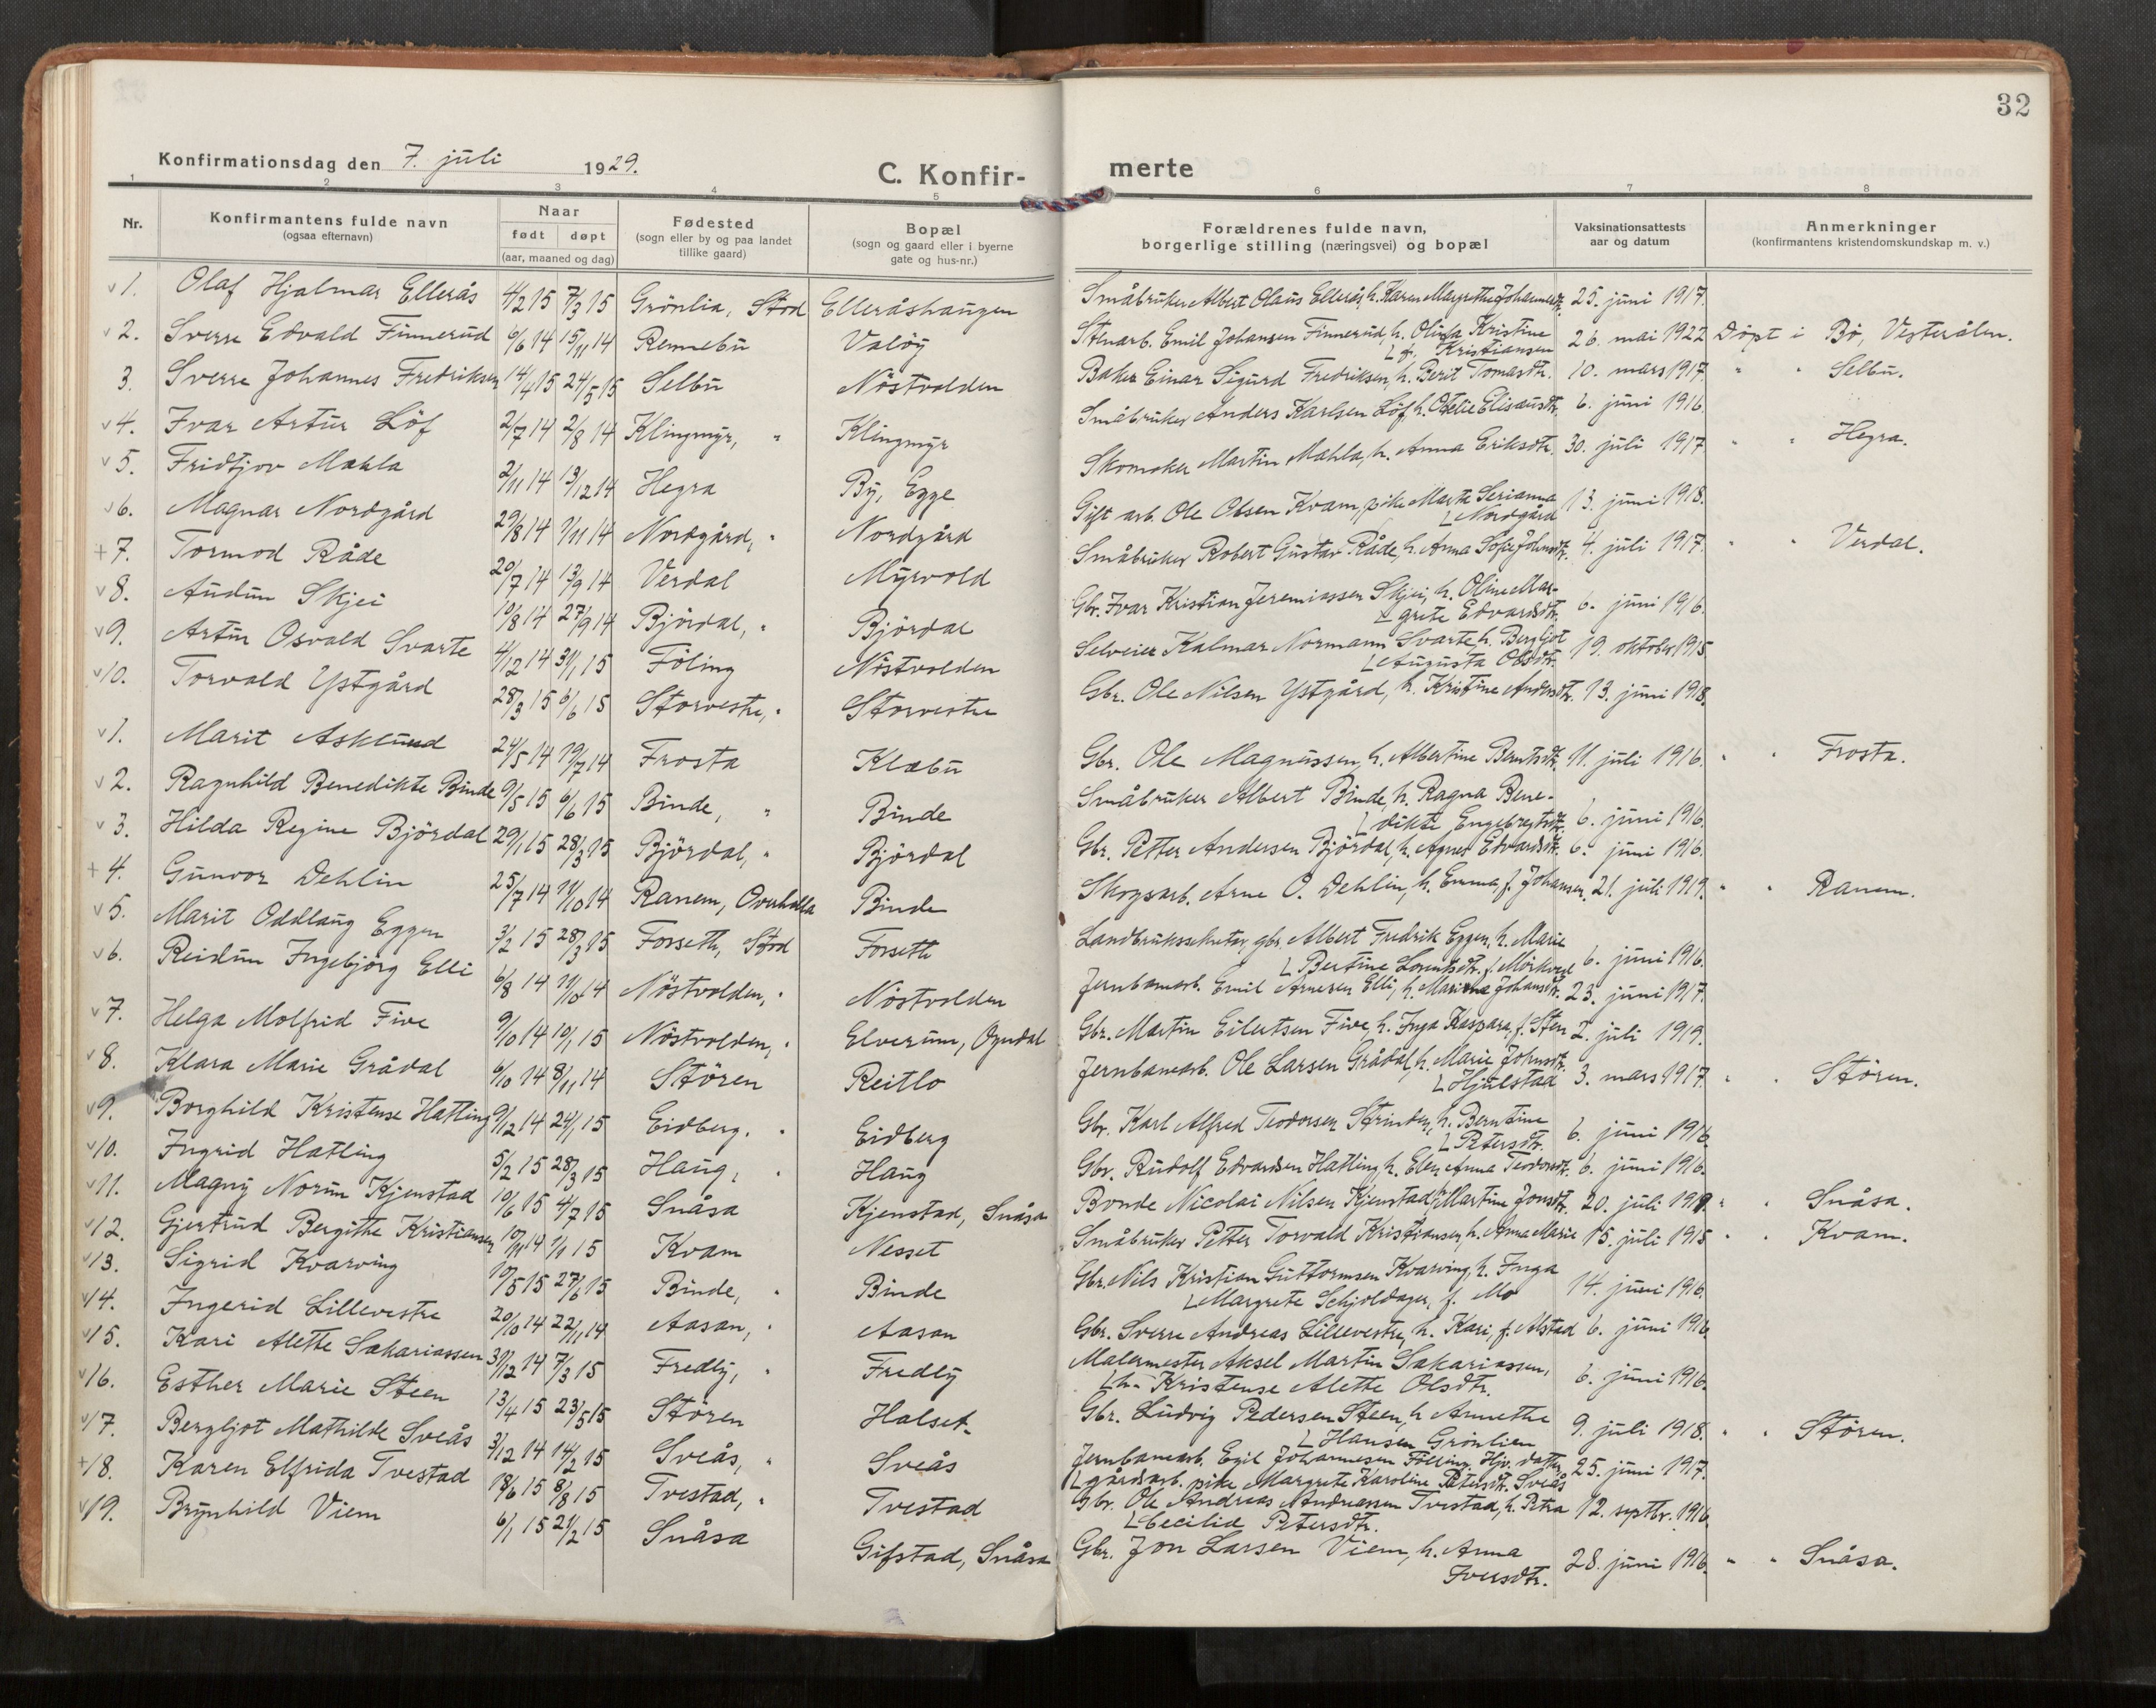 32
Konfirmationsdag den 7. juli 1929.
C. Konfir-
merte
1 2 3 4 5 6 7 8
Nr.
Konfirmantens fulde navn
(ogsaa efternavn)
Naar
født døpt
(aar, maaned og dag)
Fødested
(sogn eller by og paa landet
tillike gaard)
Bopæl
(sogn og gaard eller i byerne
gate og hus-nr.)
Forældrenes fulde navn,
borgerlige stilling (næringsvei) og bopæl
Vaksinationsattests
aar og datum
Anmerkninger
(konfirmantens kristendomskundskap m. v.)
v 1. Olaf Hjalmar Ellerås 4/2 15 7/3 15 Grönlia, Stod Elleråshaugen Småbruker Albert Olaus Ellerås, h. Karen Margrethe Johannesdtr. 25. juni 1917.
v 2. Sverre Edvald Finnerud 6/6 14 15/11 14 Rennebu Valöy Stenarb. Emil Johansen Finnerud, h. Kristine 26. mai 1922 Döpt i Bö, Vesterålen.
f. Kristiansen
3. Sverre Johannes Fredriksen 14/4 15 24/5 15 Selbu Nöstvolden Baker Einar Sigurd Fredriksen, h. Berit Tomasdtr. 10. mars 1917. " " Selbu.
v 4. Ivar Artur Löf 2/7 14 2/8 14 Klingmyr, " Klingmyr Småbruker Anders Karlsen Löf, h. Otelie Elisæusdtr. 6. juni 1916.
v 5. Fridtjov Mahla 2/11 14 13/12 14 Hegra By, Egge Skomaker Martin Mahla, h. Anna Eriksdtr. 30. juli 1917 " " Hegra.
v 6. Magnar Nordgård 29/8 14 1/11 14 Nordgård, " Nordgård Gift arb. Ole Olsen Kvam, pike Marta Serianna 13. juni 1918.
Nordgård
+ 7. Tormod Råde 20/7 14 13/9 14 Verdal Myrvold Småbruker Robert Gustav Råde, h. Anna Sofie Johnsdtr. 4. juli 1917. " " Verdal.
v 8. Audun Skjei 10/8 14 27/9 14 Björdal, " Björdal Gbr. Ivar Kristian Jeremiassen Skjei, h. Oline Mar-
grete Edvardsdtr. 6. juni 1916.
v 9. Artur Osvald Svarte 4/12 14 31/1 15 Föling Nöstvolden Selveier Kalmar Normann Svarte, h. Bergljot 19. oktober 1915
Augusta Olsdtr.
v 10. Torvald Ystgård 28/3 15 6/6 15 Storvestre, " Storvestre Gbr. Ole Nilsen Ystgård, h. Kristine Andersdtr. 13. juni 1918.
v 1. Marit Asklund 24/5 14 19/7 14 Frosta Klæbu Gbr. Ole Magnussen, h. Albertine Berntsdtr. 11. juli 1916. " " Frosta.
v 2. Ragnhild Benedikte Binde 9/5 15 6/6 15 Binde, " Binde Småbruker Albert Binde, h. Ragna Bene-
dikte Engebregtsdtr. 6. juni 1916.
v 3. Hilda Regine Björdal 29/1 15 28/3 15 Björdal, " Björdal Gbr. Petter Andersen Björdal, h. Agnes Edvardsdtr. 6. juni 1916.
+ 4. Gunvor Dehlin 25/7 14 11/10 14 Ranem, Overhalla Binde Skogsarb. Arne O. Dehlin, h. Emma, f. Johansen. 21. juli 1919. " " Ranem.
v 5. Marit Oddlaug Eggen 3/2 15 28/3 15 Forseth, Stod Forseth Landbrukssekretær, gbr. Albert Fredrik Eggen, h. Marie
Bertine Lorentsdtr. f. Mörkved 6. juni 1916.
v 6. Reidun Ingebjörg Elli 6/8 14 11/10 14 Nöstvolden, " Nöstvolden Jernbanearb. Emil Arnesen Elli, h. Marinæ Johansdtr. 23. juni 1917.
v 7. Helga Molfrid Five 9/10 14 10/1 15 Nöstvolden, " Elverum, Ogndal Gbr. Martin Eilertsen Five, h. Inga Kaspara, f. Sten 2. juli 1919.
v 8. Klara Marie Grådal 6/10 14 8/11 14 Stören Reitlo Jernbanearb. Ole Larsen Grådal, h. Marie Johnsdtr.
Hjulstad 3. mars 1917. " " Stören.
v 9. Borghild Kristense Hatling 9/12 14 24/1 15 Eidberg. " Eidberg Gbr. Karl Alfred Teodorsen Strinden, h. Berntine
Petersdtr. 6. juni 1916.
v 10. Ingrid Hatling 5/2 15 28/3 15 Haug, " Haug Gbr. Rudolf Edvardsen Hatling, h. Elen Anna Teodorsdtr. 6. juni 1916.
v 11. Magny Norun Kjenstad 10/6 15 4/7 15 Snåsa Kjenstad, Snåsa Bonde Nicolai Nilsen Kjenstad, Martine Jonsdtr. 20. juli 1919. " " Snåsa.
v 12. Gjertrud Bergithe Kristiansen 10/11 14 1/1 15 Kvam Nesset Småbruker Petter Torvald Kristiansen, h. Anna Marie 15. juli 1915 " " Kvam.
v 13. Sigrid Kvarving 10/5 15 27/6 15 Binde, " Binde Gbr. Nils Kristian Guttormsen Kvarving, h. Inga
Margrete Schjoldager, f. Mo 14. juni 1916.
v 14. Ingerid Lillevestre 20/10 14 22/11 14 Aasan, " Aasan Gbr. Sverre Andreas Lillevestre, h. Kari, f. Alstad 6. juni 1916.
v 15. Kari Alette Sakariassen 31/12 14 7/3 15 Fredly, " Fredly Malermester Aksel Martin Sakariassen,
h. Kristense Alette Olsdtr. 6. juni 1916.
v 16. Esther Marie Steen 13/4 15 23/5 15 Stören Halset. Gbr. Ludvig Pedersen Steen, h. Annethe
Hansen Grönlien 9. juli 1918. " " Stören.
v 17. Bergljot Mathilde Sveås 3/12 14 14/2 15 Sveås, " Sveås Jernbanearb. Egil Johannesen Fölling. Hjv. datter,
gårdsarb. pike Margrete Karoline Petersdtr. Sveås 25. juni 1917.
+ 18. Karen Elfrida Tvestad 18/6 15 8/8 15 Tvestad, " Tvestad Gbr. Ole Andreas Andreassen Tvestad, h. Petra 12. septbr. 1916.
Cecilie Petersdtr.
v 19. Brynhild Viem 6/1 15 21/2 15 Snåsa Gifstad, Snåsa Gbr. Jon Larsen Viem, h. Anna
Iversdtr. 28. juni 1916. " " Snåsa.